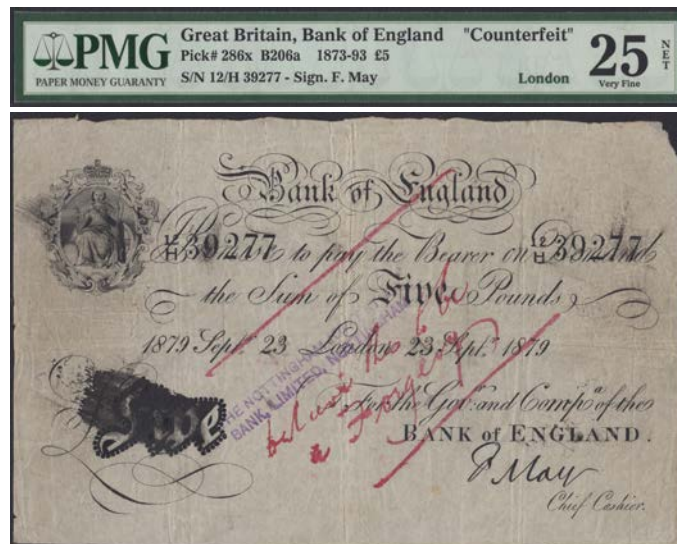 PMG
PAPER MONEY GUARANTY
Great Britain, Bank of England "Counterfeit"
Pick# 286x B206a 1873-93 £5
S/N 12/H 39277 - Sign. F. May
London
25
NET
Very Fine
Bank of England
12/H 39277 to pay the Bearer on 12/H 39277
the Sum of Five Pounds
1879 Sept. 23 London 23 Sept. 1879
THE NOTTINGHAM
BANK, LIMITED, NOTTINGHAM
to be
a Forgery
For the Gov.r and Comp.a of the
BANK of ENGLAND.
Five
F May
Chief Cashier.